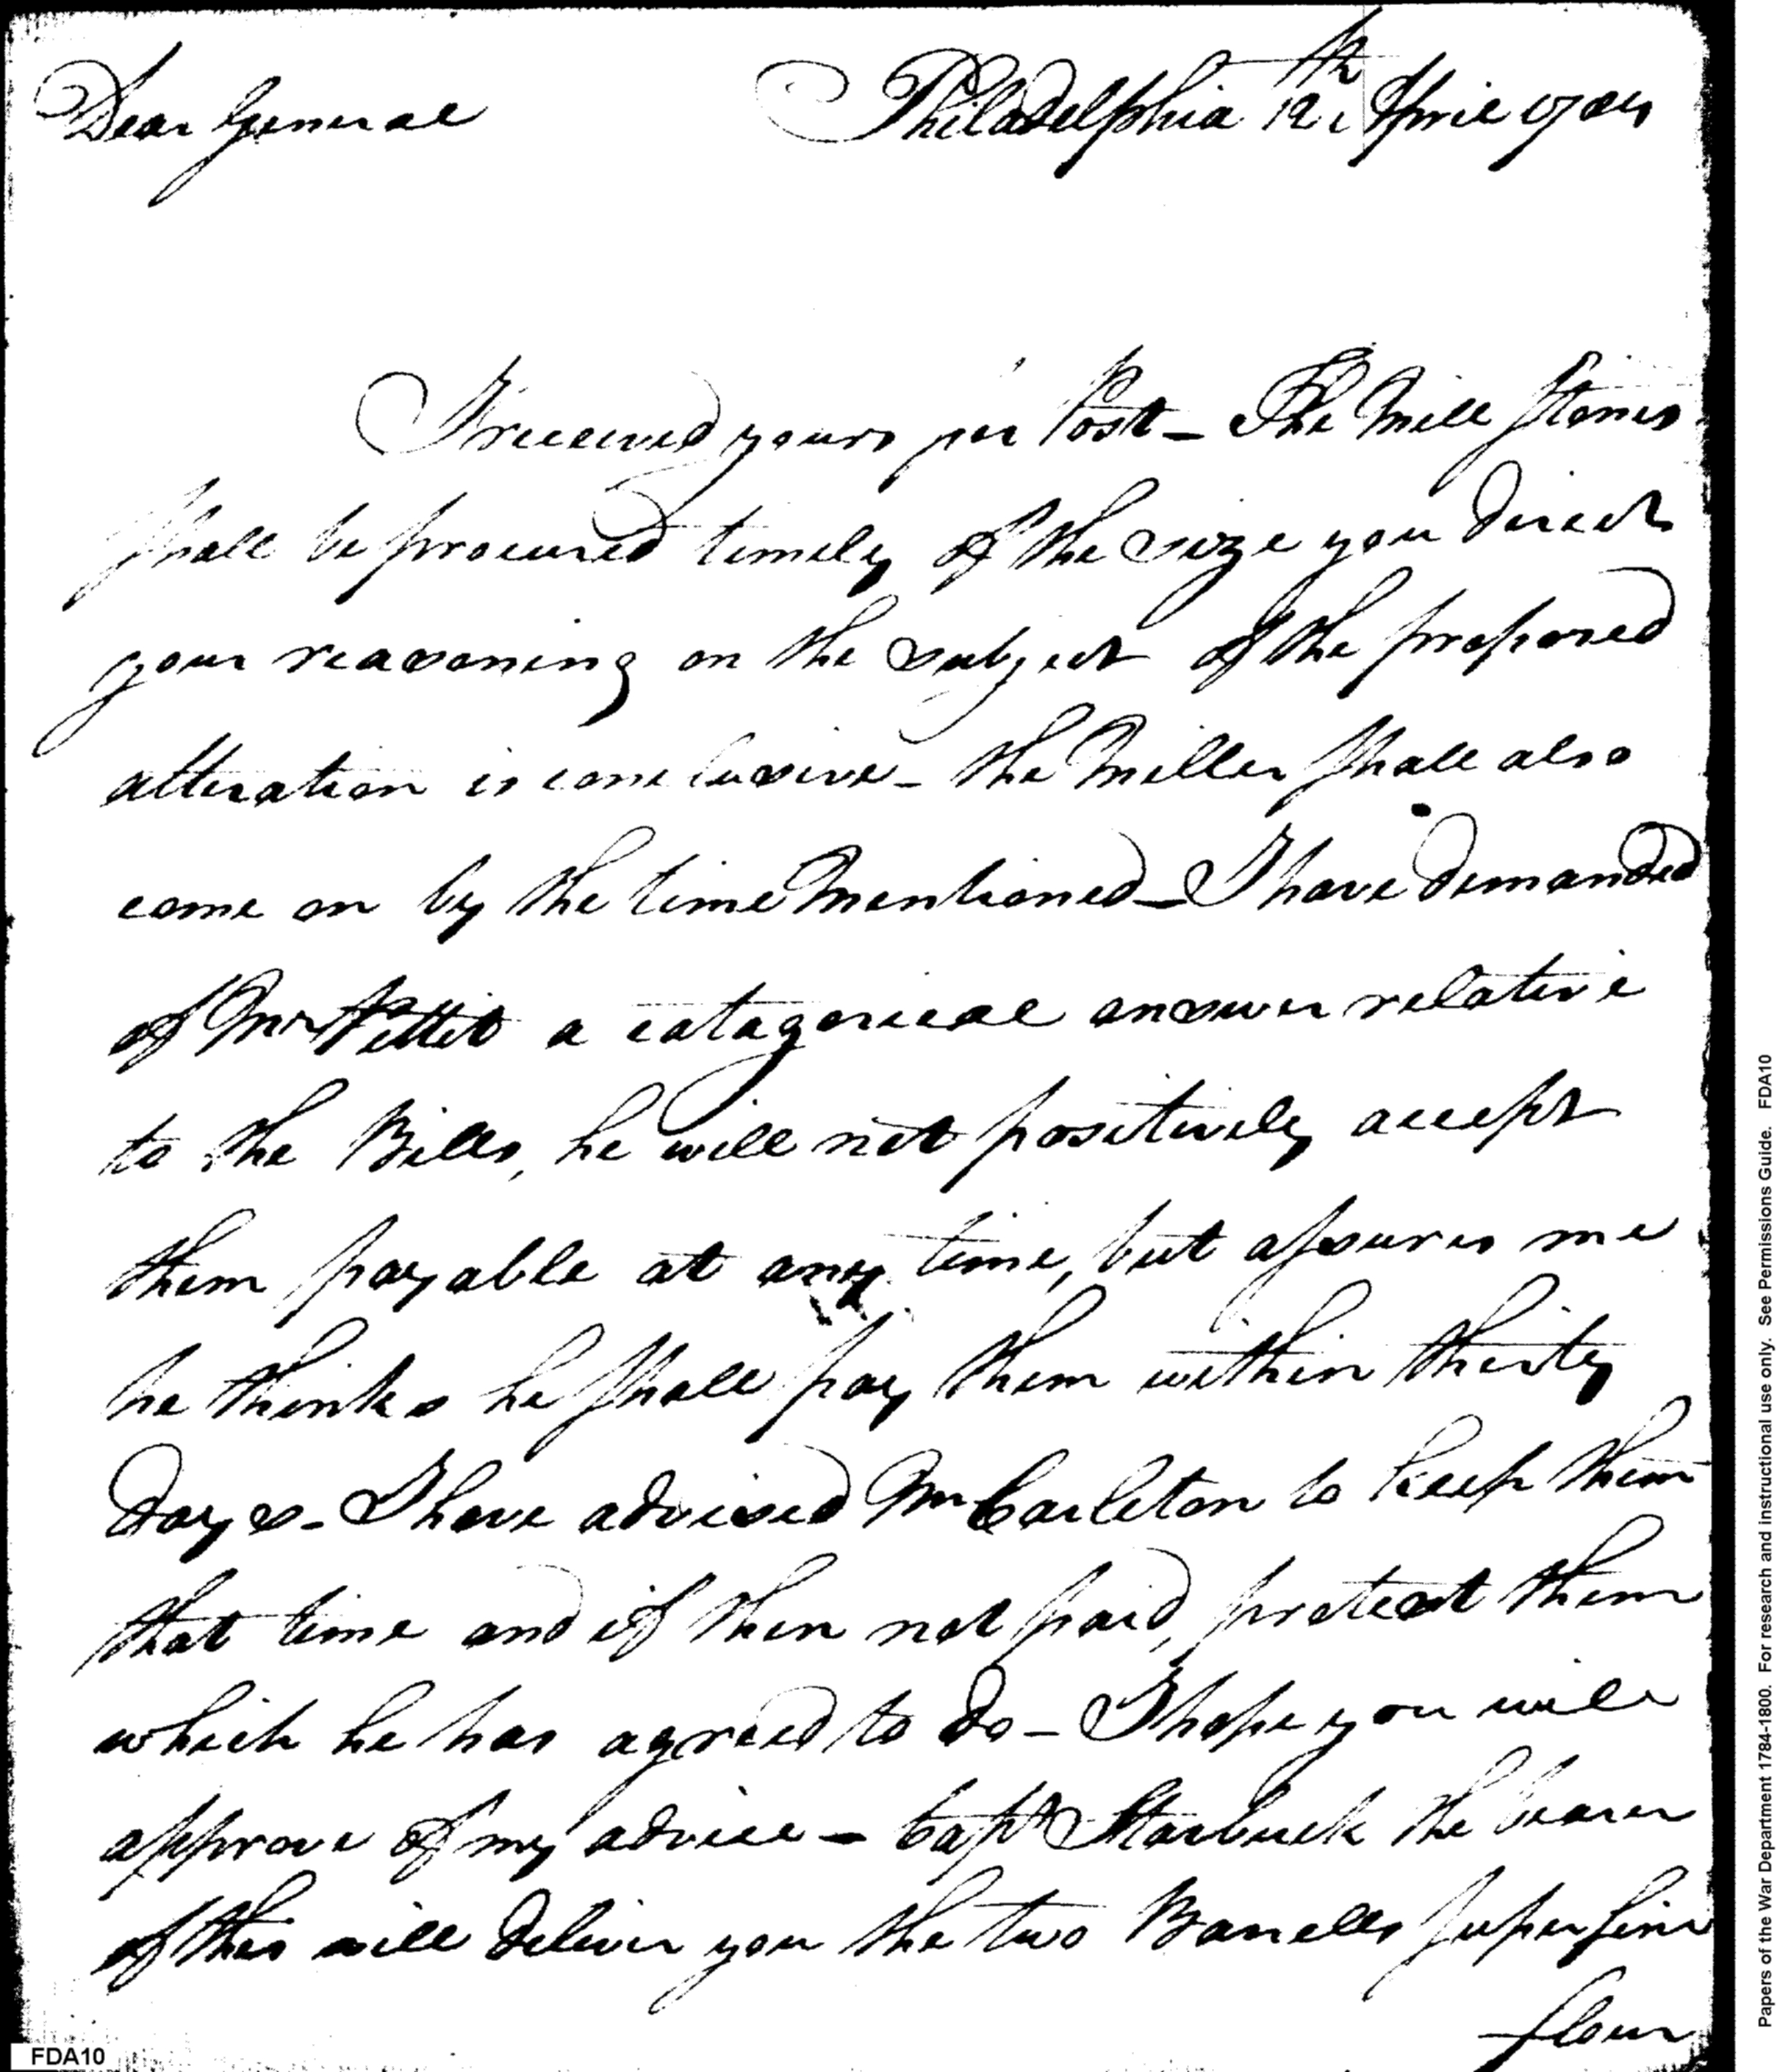 Dear General Philadelphia 12th April 1784
I received yours per Post – The Mill Stones
shall be procured timely of the size you direct
your reasoning on the subject of the proposed
alteration is conclusive – the Miller shall also
come on by the time Mentioned – I have demanded
of Mr Pettit a catagorical answer relative
to the Bills, he will not positively accept
them payable at any time, but assures me
he thinks he shall pay them within thirty
days – I have advised Mr Carleton to keep them
that time and if then not paid, protest them
which he has agreed to do – I hope you will
approve of my advice – Capt Starbuck the bearer
of this will deliver you the two Barrells superfine
flour
FDA10
Papers of the War Department 1784-1800. For research and instructional use only. See Permissions Guide. FDA10